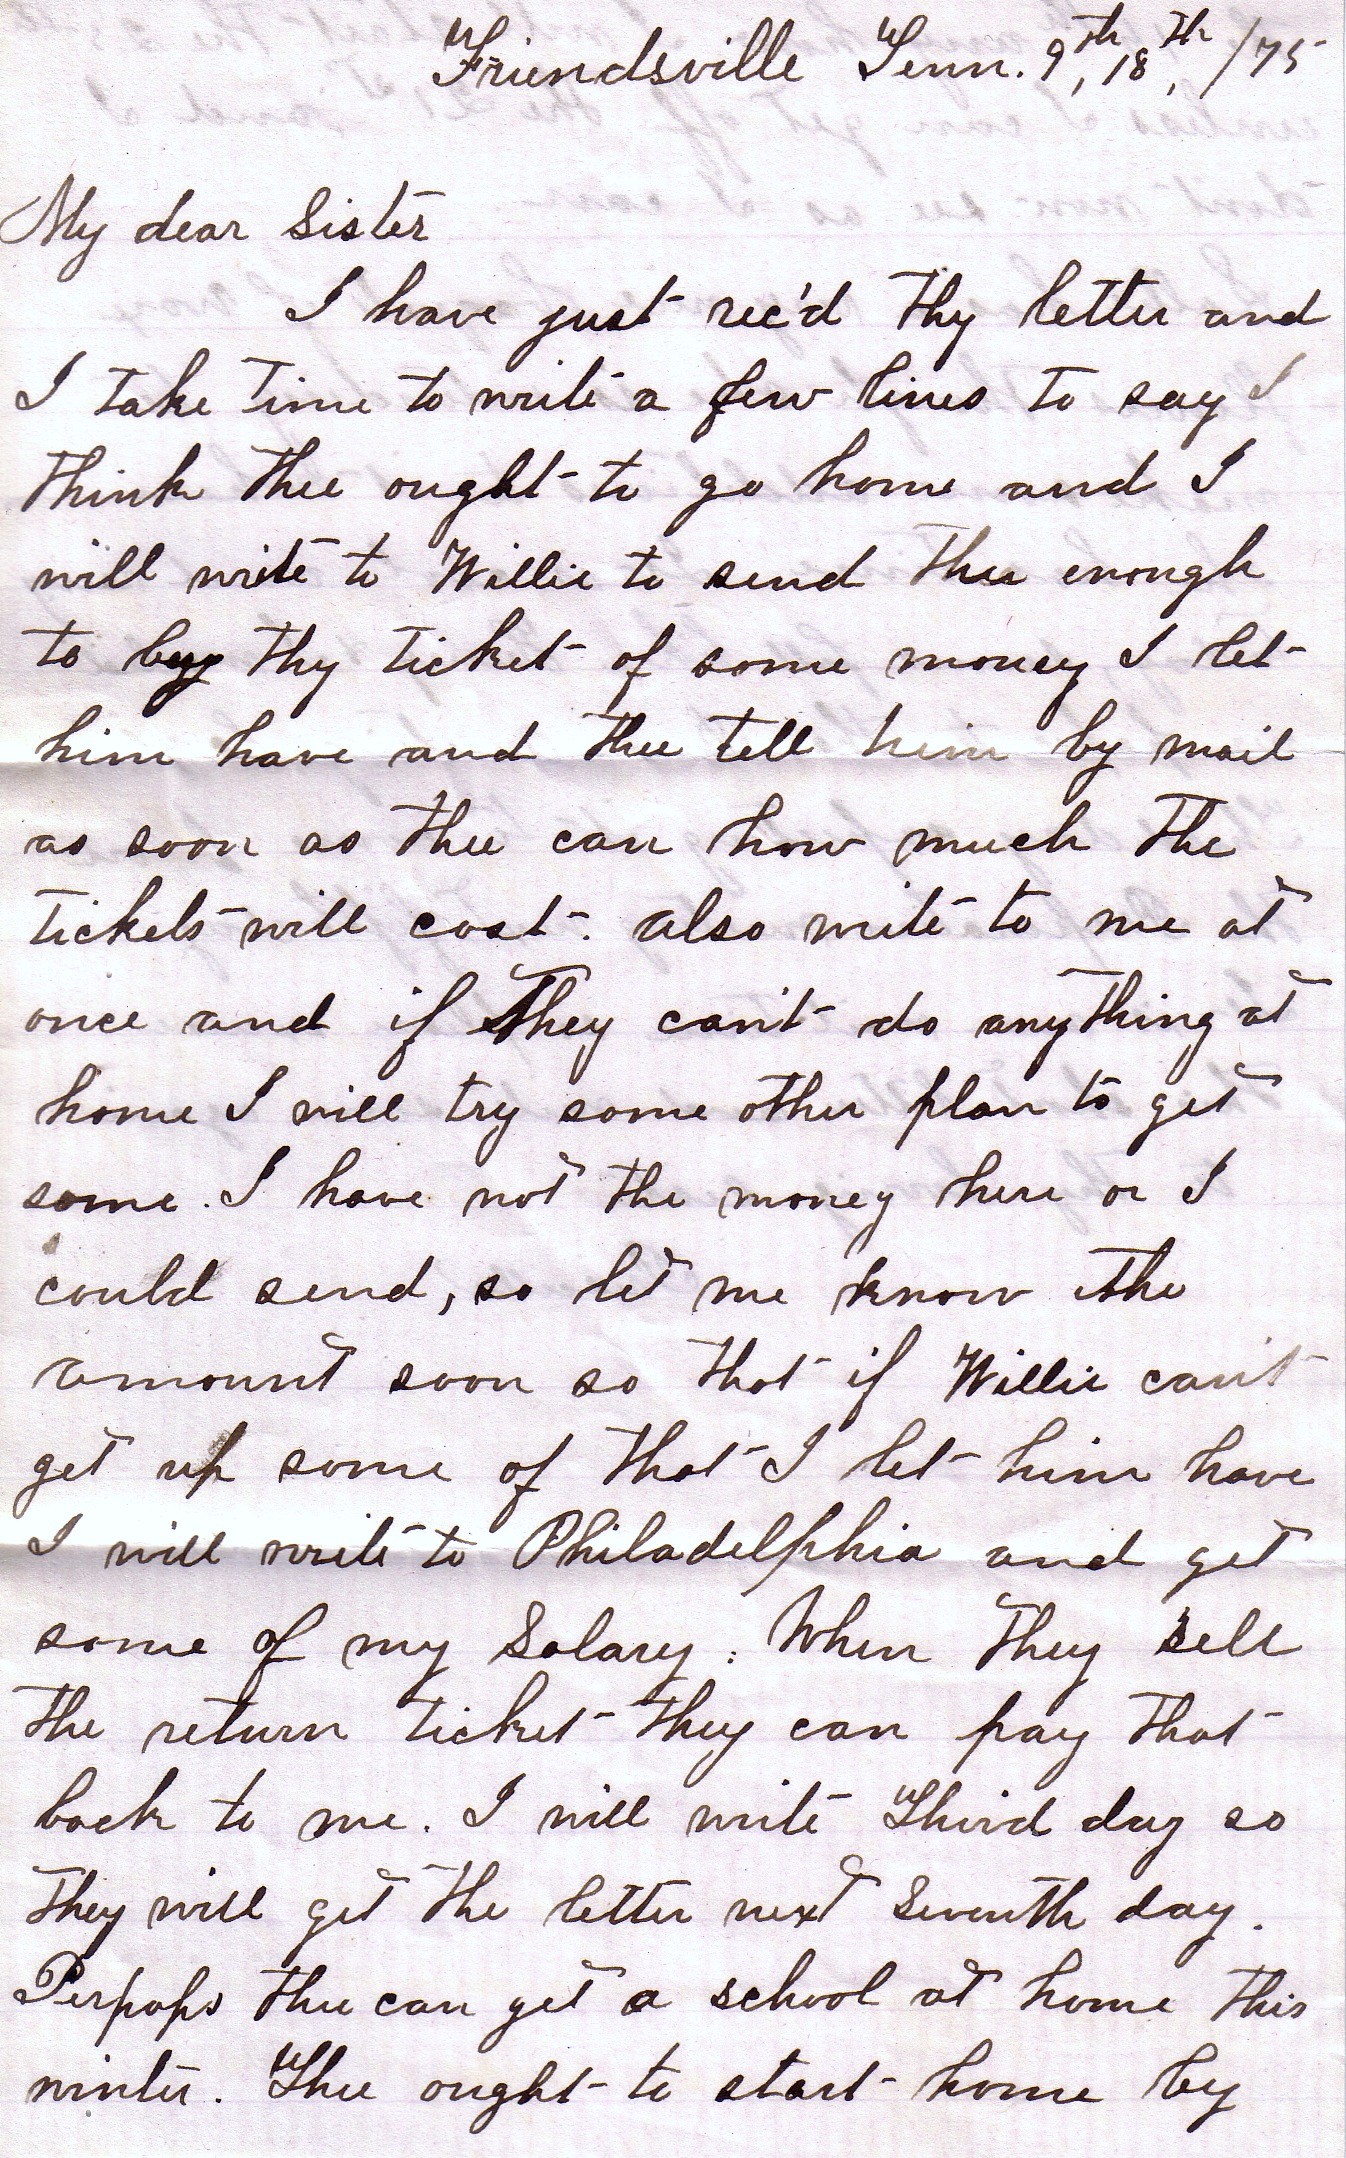 Friendsville Tenn. 9th, 18th, /75
My dear Sister
I have just rec'd thy letter and
I take time to write a few lines to say I
think thee ought to go home and I
will write to Willie to send thee enough
to buy thy ticket of some money I let
him have and thee tell him by mail
as soon as thee can how much the
tickets will cost. also write to me at
once and if they can't do anything at
home I will try some other plan to get
some. I have not the money here or I
could send, so let me know the
amount soon so that if Willie can't
get up some of that I let him have
I will write to Philadelphia and get
some of my Salary. When they sell
the return ticket they can pay that
back to me. I will write Third day so
they will get the letter next Seventh day.
Perpaps thee can get a school at home this
winter. Thee ought to start home by